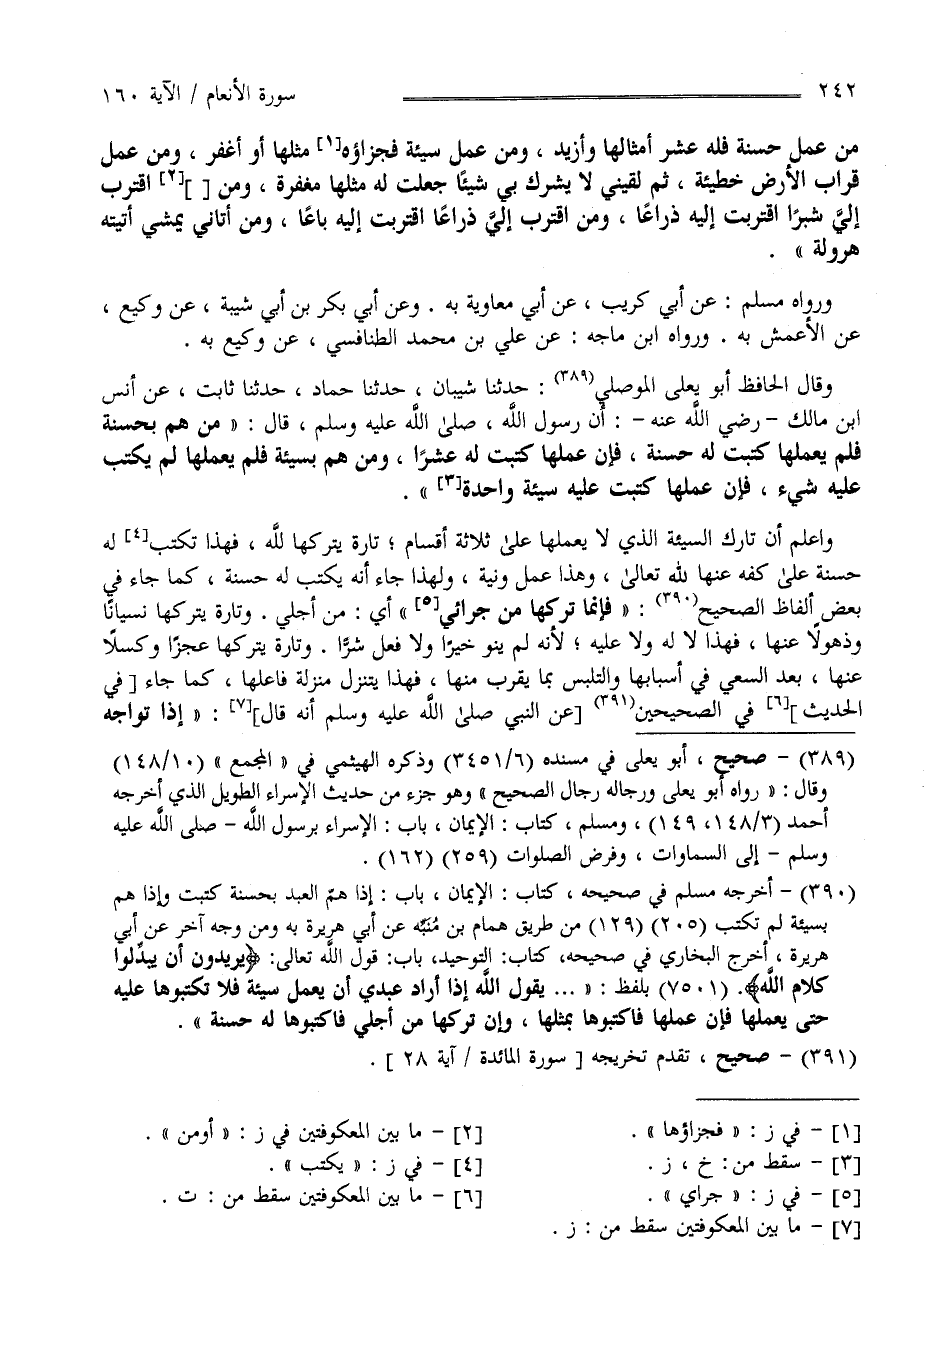 ٢٤٢ سورة الأنعام / الآية ١٦٠
من عمل حسنة فله عشر أمثالها وأزيد ، ومن عمل سيئة فجزاؤه[١] مثلها أو أغفر ، ومن عمل
قراب الأرض خطيئة ، ثم لقيني لا يشرك بي شيئًا جعلت له مثلها مغفرة ، ومن [ ][٢] اقترب
إليَّ شبرًا اقتربت إليه ذراعًا ، ومن اقترب إليَّ ذراعًا اقتربت إليه باعًا ، ومن أتاني يمشي أتيته
هرولة » .
ورواه مسلم : عن أبي كريب ، عن أبي معاوية به . وعن أبي بكر بن أبي شيبة ، عن وكيع ،
عن الأعمش به . ورواه ابن ماجه : عن علي بن محمد الطنافسي ، عن وكيع به .
وقال الحافظ أبو يعلى الموصلي(٣٨٩) : حدثنا شيبان ، حدثنا حماد ، حدثنا ثابت ، عن أنس
ابن مالك – رضي اللَّه عنه – : أن رسول اللَّه ، صلىٰ اللَّه عليه وسلم ، قال : « من هم بحسنة
فلم يعملها كتبت له حسنة ، فإن عملها كتبت له عشرًا ، ومن هم بسيئة فلم يعملها لم يكتب
عليه شيء ، فإن عملها كتبت عليه سيئة واحدة[٣] » .
واعلم أن تارك السيئة الذي لا يعملها علىٰ ثلاثة أقسام ؛ تارة يتركها للَّه ، فهذا تكتب[٤] له
حسنة علىٰ كفه عنها لله تعالىٰ ، وهذا عمل ونية ، ولهذا جاء أنه يكتب له حسنة ، كما جاء في
بعض ألفاظ الصحيح(٣٩٠) : « فإنما تركها من جرائي[٥] » أي : من أجلي . وتارة يتركها نسيانًا
وذهولًا عنها ، فهذا لا له ولا عليه ؛ لأنه لم ينو خيرًا ولا فعل شرًّا . وتارة يتركها عجزًا وكسلًا
عنها ، بعد السعي في أسبابها والتلبس بما يقرب منها ، فهذا يتنزل منزلة فاعلها ، كما جاء [ في
الحديث ][٦] في الصحيحين(٣٩١) [عن النبي صلىٰ اللَّه عليه وسلم أنه قال][٧] : « إذا تواجه
(٣٨٩) – صحيح ، أبو يعلى في مسنده (٣٤٥١/٦) وذكره الهيثمي في « المجمع » (١٤٨/١٠)
وقال : « رواه أبو يعلى ورجاله رجال الصحيح » وهو جزء من حديث الإسراء الطويل الذي أخرجه
أحمد (١٤٨/٣، ١٤٩) ، ومسلم ، كتاب : الإيمان ، باب : الإسراء برسول اللَّه – صلى اللَّه عليه
وسلم – إلى السماوات ، وفرض الصلوات (٢٥٩) (١٦٢) .
(٣٩٠) – أخرجه مسلم في صحيحه ، كتاب : الإيمان ، باب : إذا همّ العبد بحسنة كتبت وإذا هم
بسيئة لم تكتب (٢٠٥) (١٢٩) من طريق همام بن مُنَبِّه عن أبي هريرة به ومن وجه آخر عن أبي
هريرة ، أخرج البخاري في صحيحه، كتاب: التوحيد، باب: قول اللَّه تعالى: ﴿يريدون أن يبدِّلوا
كلام اللَّه﴾. (٧٥٠١) بلفظ : « ... يقول اللَّه إذا أراد عبدي أن يعمل سيئة فلا تكتبوها عليه
حتى يعملها فإن عملها فاكتبوها بمثلها ، وإن تركها من أجلي فاكتبوها له حسنة » .
(٣٩١) – صحيح ، تقدم تخريجه [ سورة المائدة / آية ٢٨ ] .
[١] – في ز : « فجزاؤها » . [٢] – ما بين المعكوفتين في ز : « أومن » .
[٣] – سقط من: خ ، ز . [٤] – في ز : « يكتب » .
[٥] – في ز : « جراي » . [٦] – ما بين المعكوفتين سقط من : ت .
[٧] – ما بين المعكوفتين سقط من : ز .